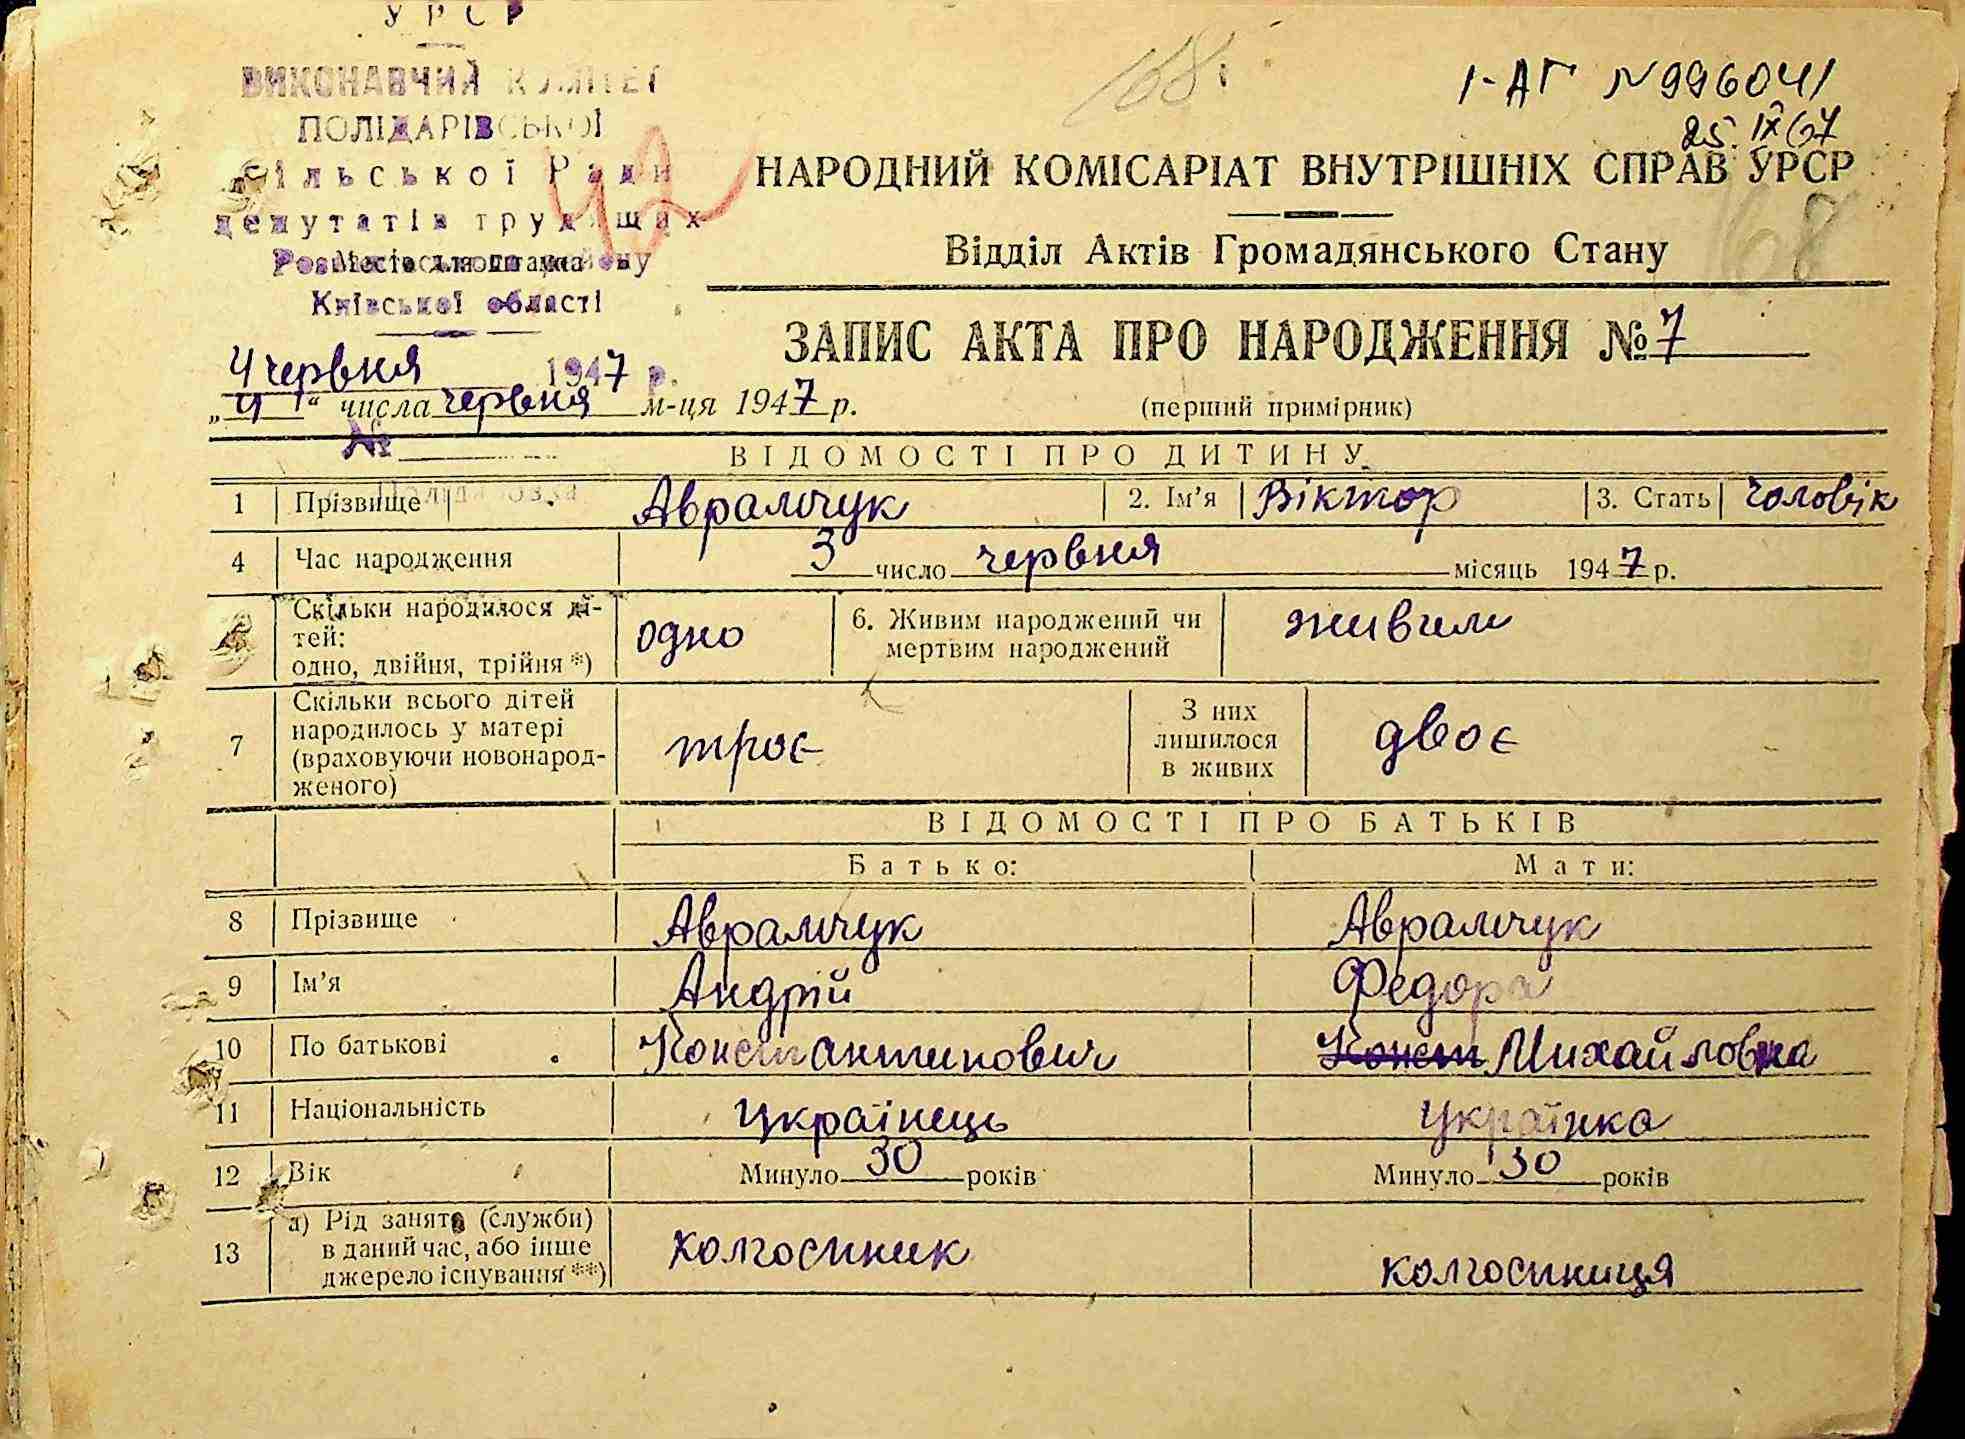 УРСР
ВИКОНАВЧИЙ КОМІТЕТ
ПОЛІДАРІВСЬКОЇ
Сільської Ради
депутатів трудящих
Місце для штампа
Київської області
4 червня 1947 р.
№
42
168
1-АГ N 996041
25.IX 67
НАРОДНИЙ КОМІСАРІАТ ВНУТРІШНІХ СПРАВ УРСР
Відділ Актів Громадянського Стану
68
ЗАПИС АКТА ПРО НАРОДЖЕННЯ № 7
„4“ числа червня м-ця 1947 р. (перший примірник)
ВІДОМОСТІ ПРО ДИТИНУ
1 Прізвище Аврамчук 2. Ім’я Віктор 3. Стать чоловік
4 Час народження 3 число червня місяць 1947 р.
Скільки народилося ді-
тей:
одно, двійня, трійня *) одно 6. Живим народжений чи
мертвим народжений живим
7 Скільки всього дітей
народилось у матері
(враховуючи новонарод-
женого) троє З них
лишилося
в живих двоє
ВІДОМОСТІ ПРО БАТЬКІВ
Батько: Мати:
8 Прізвище Аврамчук Аврамчук
9 Ім’я Андрій Федора
10 По батькові Константинович Конст Михайловна
11 Національність українець українка
12 Вік Минуло 30 років Минуло 30 років
13 а) Рід занять (служби)
в даний час, або інше
джерело існування **) колгоспник колгоспниця